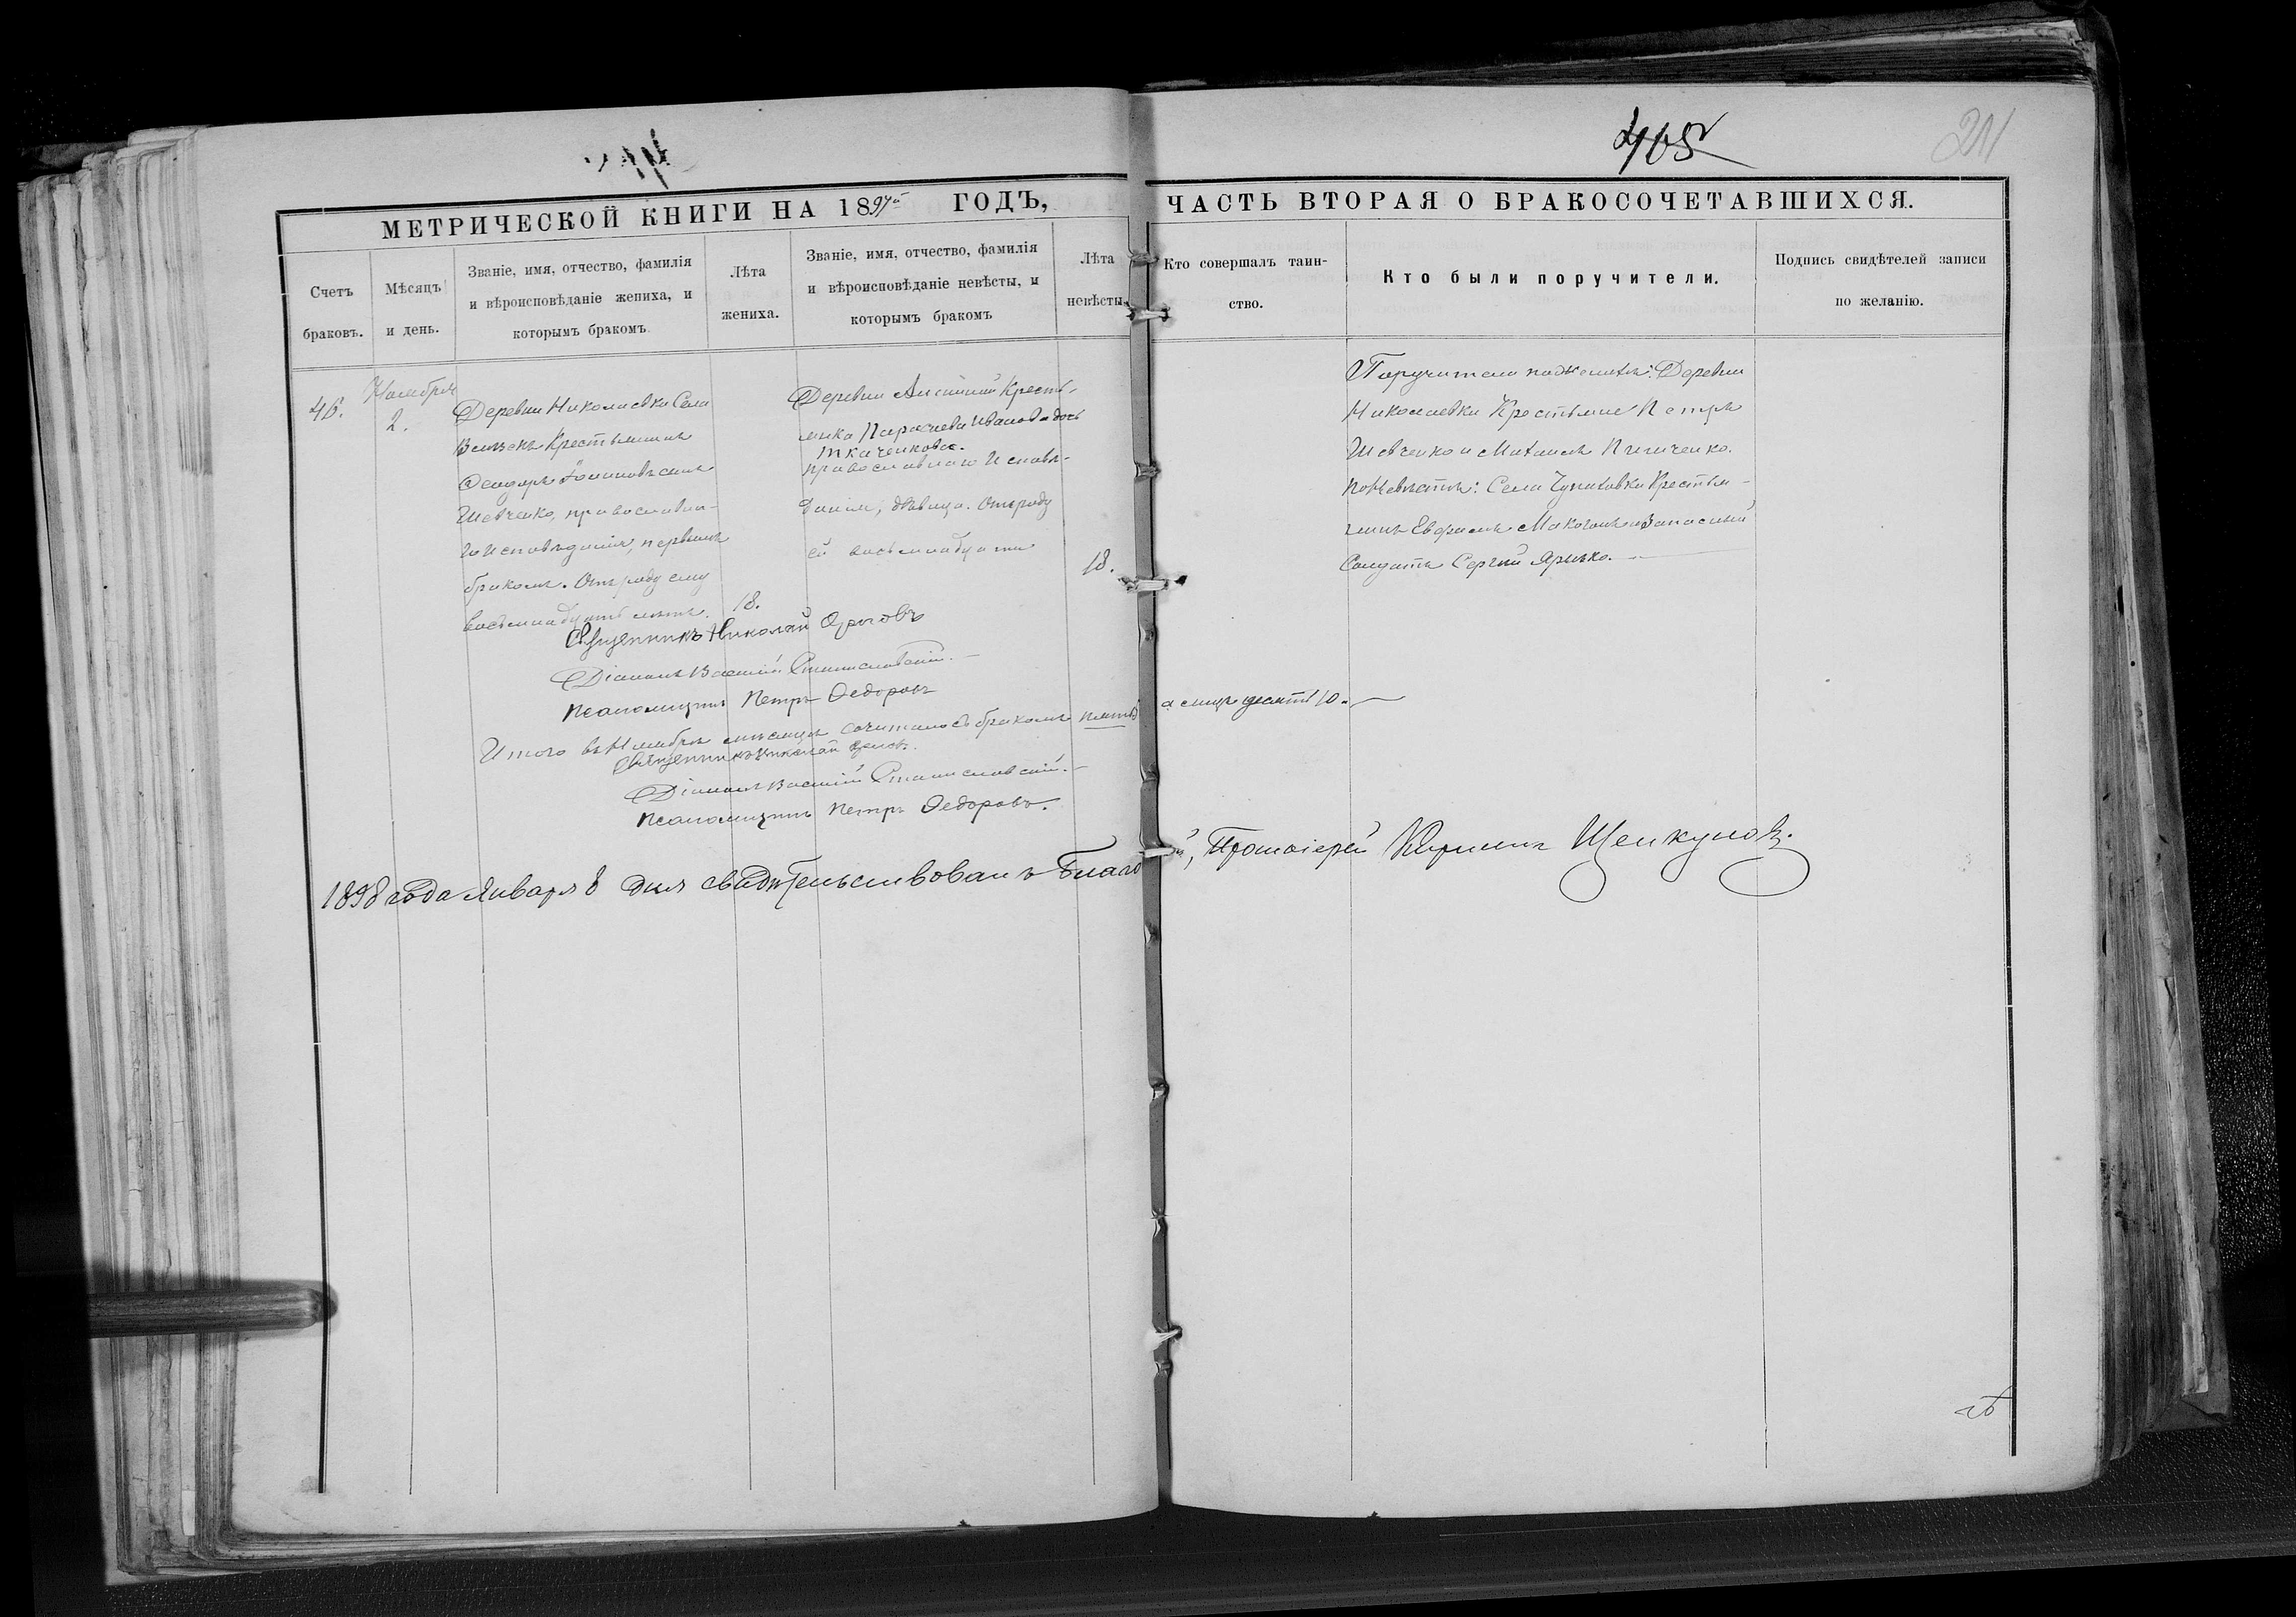 405
211
МЕТРИЧЕСКОЙ КНИГИ НА 1897й ГОДЪ,
ЧАСТЬ ВТОРАЯ О БРАКОСОЧЕТАВШИХСЯ.
Счетъ
браковъ.
Мѣсяцъ
и день.
Званіе, имя, отчество, фамилія
и вѣроисповѣданіе жениха, и
которымъ бракомъ
Лѣта
жениха.
Званіе, имя, отчество, фамилія
и вѣроисповѣданіе невѣсты, и
которымъ бракомъ
Лѣта
невѣсты.
Кто совершалъ таин-
ство.
Кто были поручители.
Подпись свидѣтелей записи
по желанію.
46.
Ноября
2.
Деревни Николаевки
Крестьянинъ
сынъ
Шевченко, православна-
го исповѣданія, первымъ
бракомъ. Отъ роду ему
восемнадцать лѣтъ.
18.
Деревни Кресть-
янка Параскева Иванова дочь
Ткаченкова.
православнаго исповѣ-
данія, дѣвица. Отъ роду
ей восемнадцати
18.
Поручители по женихѣ: Деревни
Николаевки Крестьяне Петръ
Шевченко и Михаилъ
по невѣстѣ: Села Крестья-
нинъ Евфимъ и Запасный
Солдатъ Сергій
Священникъ Николай
Діаконъ Василій Станиславскій.
Псаломщикъ Петръ Федоровъ
Итого въ Ноябрѣ мѣсяцѣ сочеталось бракомъ пять
а лицъ десять 10.
Священникъ Николай
Діаконъ Василій Станиславскій.
Псаломщикъ Петръ Федоровъ.
1898 года Января 8 дня свидѣтельствовалъ Благо
й, Протоіерей Кириллъ Щелкуновъ.